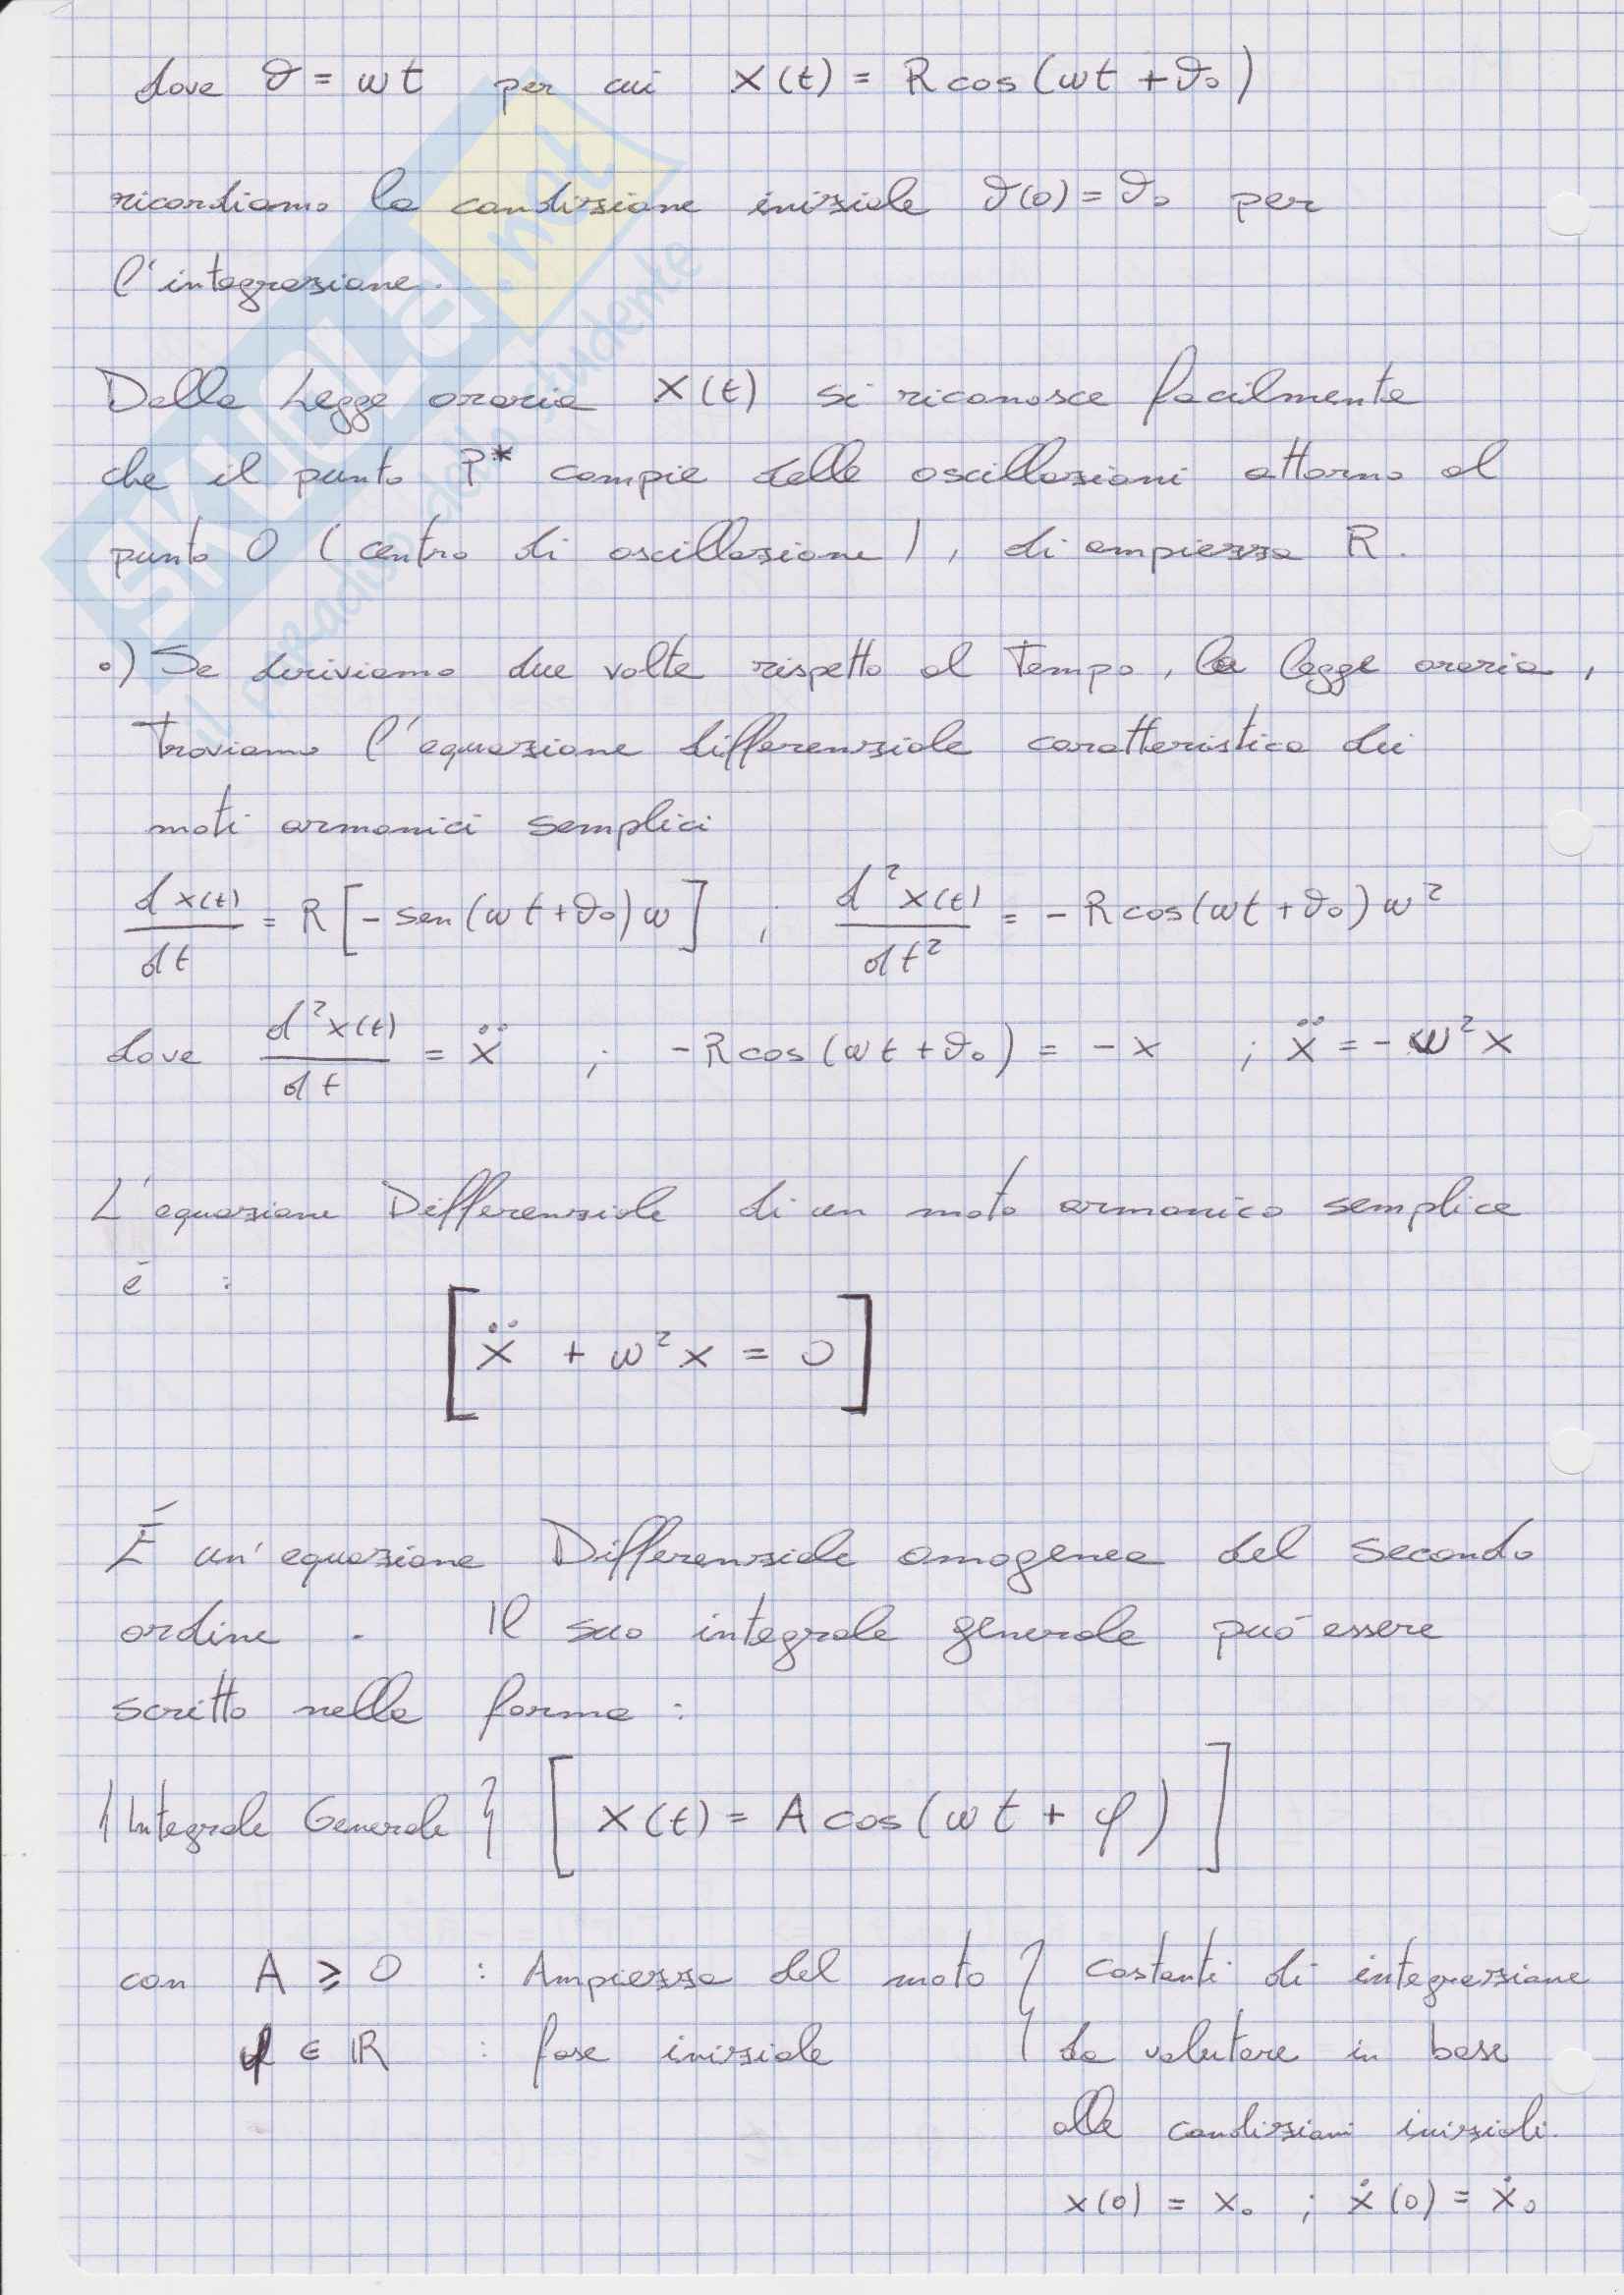 dove ϑ = ωt per cui X(t) = R cos(ωt + ϑ₀)
ricordiamo la condizione iniziale ϑ(0) = ϑ₀ per
l'integrazione.
Dalla Legge oraria X(t) si riconosce facilmente
che il punto P* compie delle oscillazioni attorno al
punto O (centro di oscillazione), di ampiezza R.
•) Se deriviamo due volte rispetto al Tempo, la legge oraria,
Troviamo l'equazione differenziale caratteristica dei
moti armonici semplici
dx(t)/dt = R[-sen(ωt+ϑ₀)ω] ; d²x(t)/dt² = -R cos(ωt+ϑ₀)ω²
dove d²x(t)/dt = ẍ ; -R cos(ωt+ϑ₀) = -x ; ẍ = -ω²x
L'equazione Differenziale di un moto armonico semplice
é :
[ẍ + ω²x = 0]
É un'equazione Differenziale omogenea del secondo
ordine. Il suo integrale generale puó essere
scritto nella forma :
{Integrale Generale} [X(t) = A cos(ωt + φ)]
con A ⩾ 0 : Ampiezza del moto } costanti di integrazione
φ ∈ ℝ : fase iniziale } da valutare in base
alle condizioni iniziali.
x(0) = x₀ ; ẋ(0) = ẋ₀
SKUOLA.net
il paradiso dello studente